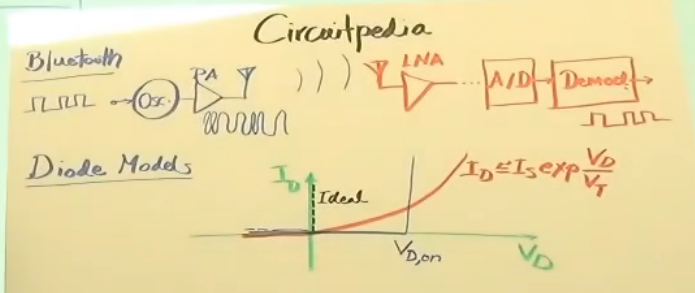 Circuitpedia
Bluetooth
Osc.
PA
LNA
A/D
Demod
Diode Models
I_D
Ideal
I_D ≅ I_S exp V_D/V_T
V_D,on
V_D